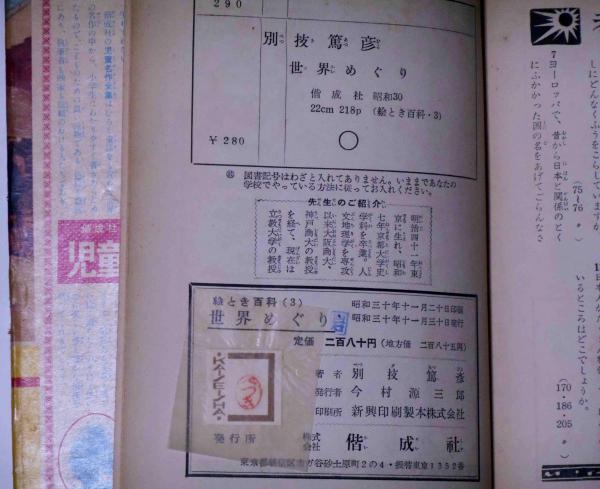 290
別技篤彦
世界めぐり
偕成社 昭和30
22cm 218p (絵とき百科・3)
¥280
図書記号はわざと入れてありません。いままであなたの
学校でやっている方法に従ってお入れください。
先生のご紹介
明治四十一年東
京に生れ、昭和
七年京都大学史
学科を卒業。人
文地理学を専攻
以来大阪商大、
神戸商大の教授
を経て、現在は
立教大学の教授
絵とき百科(3)
世界めぐり
昭和三十年十一月二十日印刷
昭和三十年十一月三十日発行
定価 二百八十円(地方価 二百八十五円)
著者 別技篤彦
発行者 今村源三郎
印刷所 新興印刷製本株式会社
発行所 株式会社 偕成社
東京都新宿区市ガ谷砂土原町2の4・振替東京1352番
7 ヨーロッパで、昔から日本と関係のとく
にふかかった国の名をあげてごらんなさ
(75〜76 〃)
しにどんなくふうをこらしていますか
いるところはどこでしょうか。
170・186・205 〃
偕成社
児童